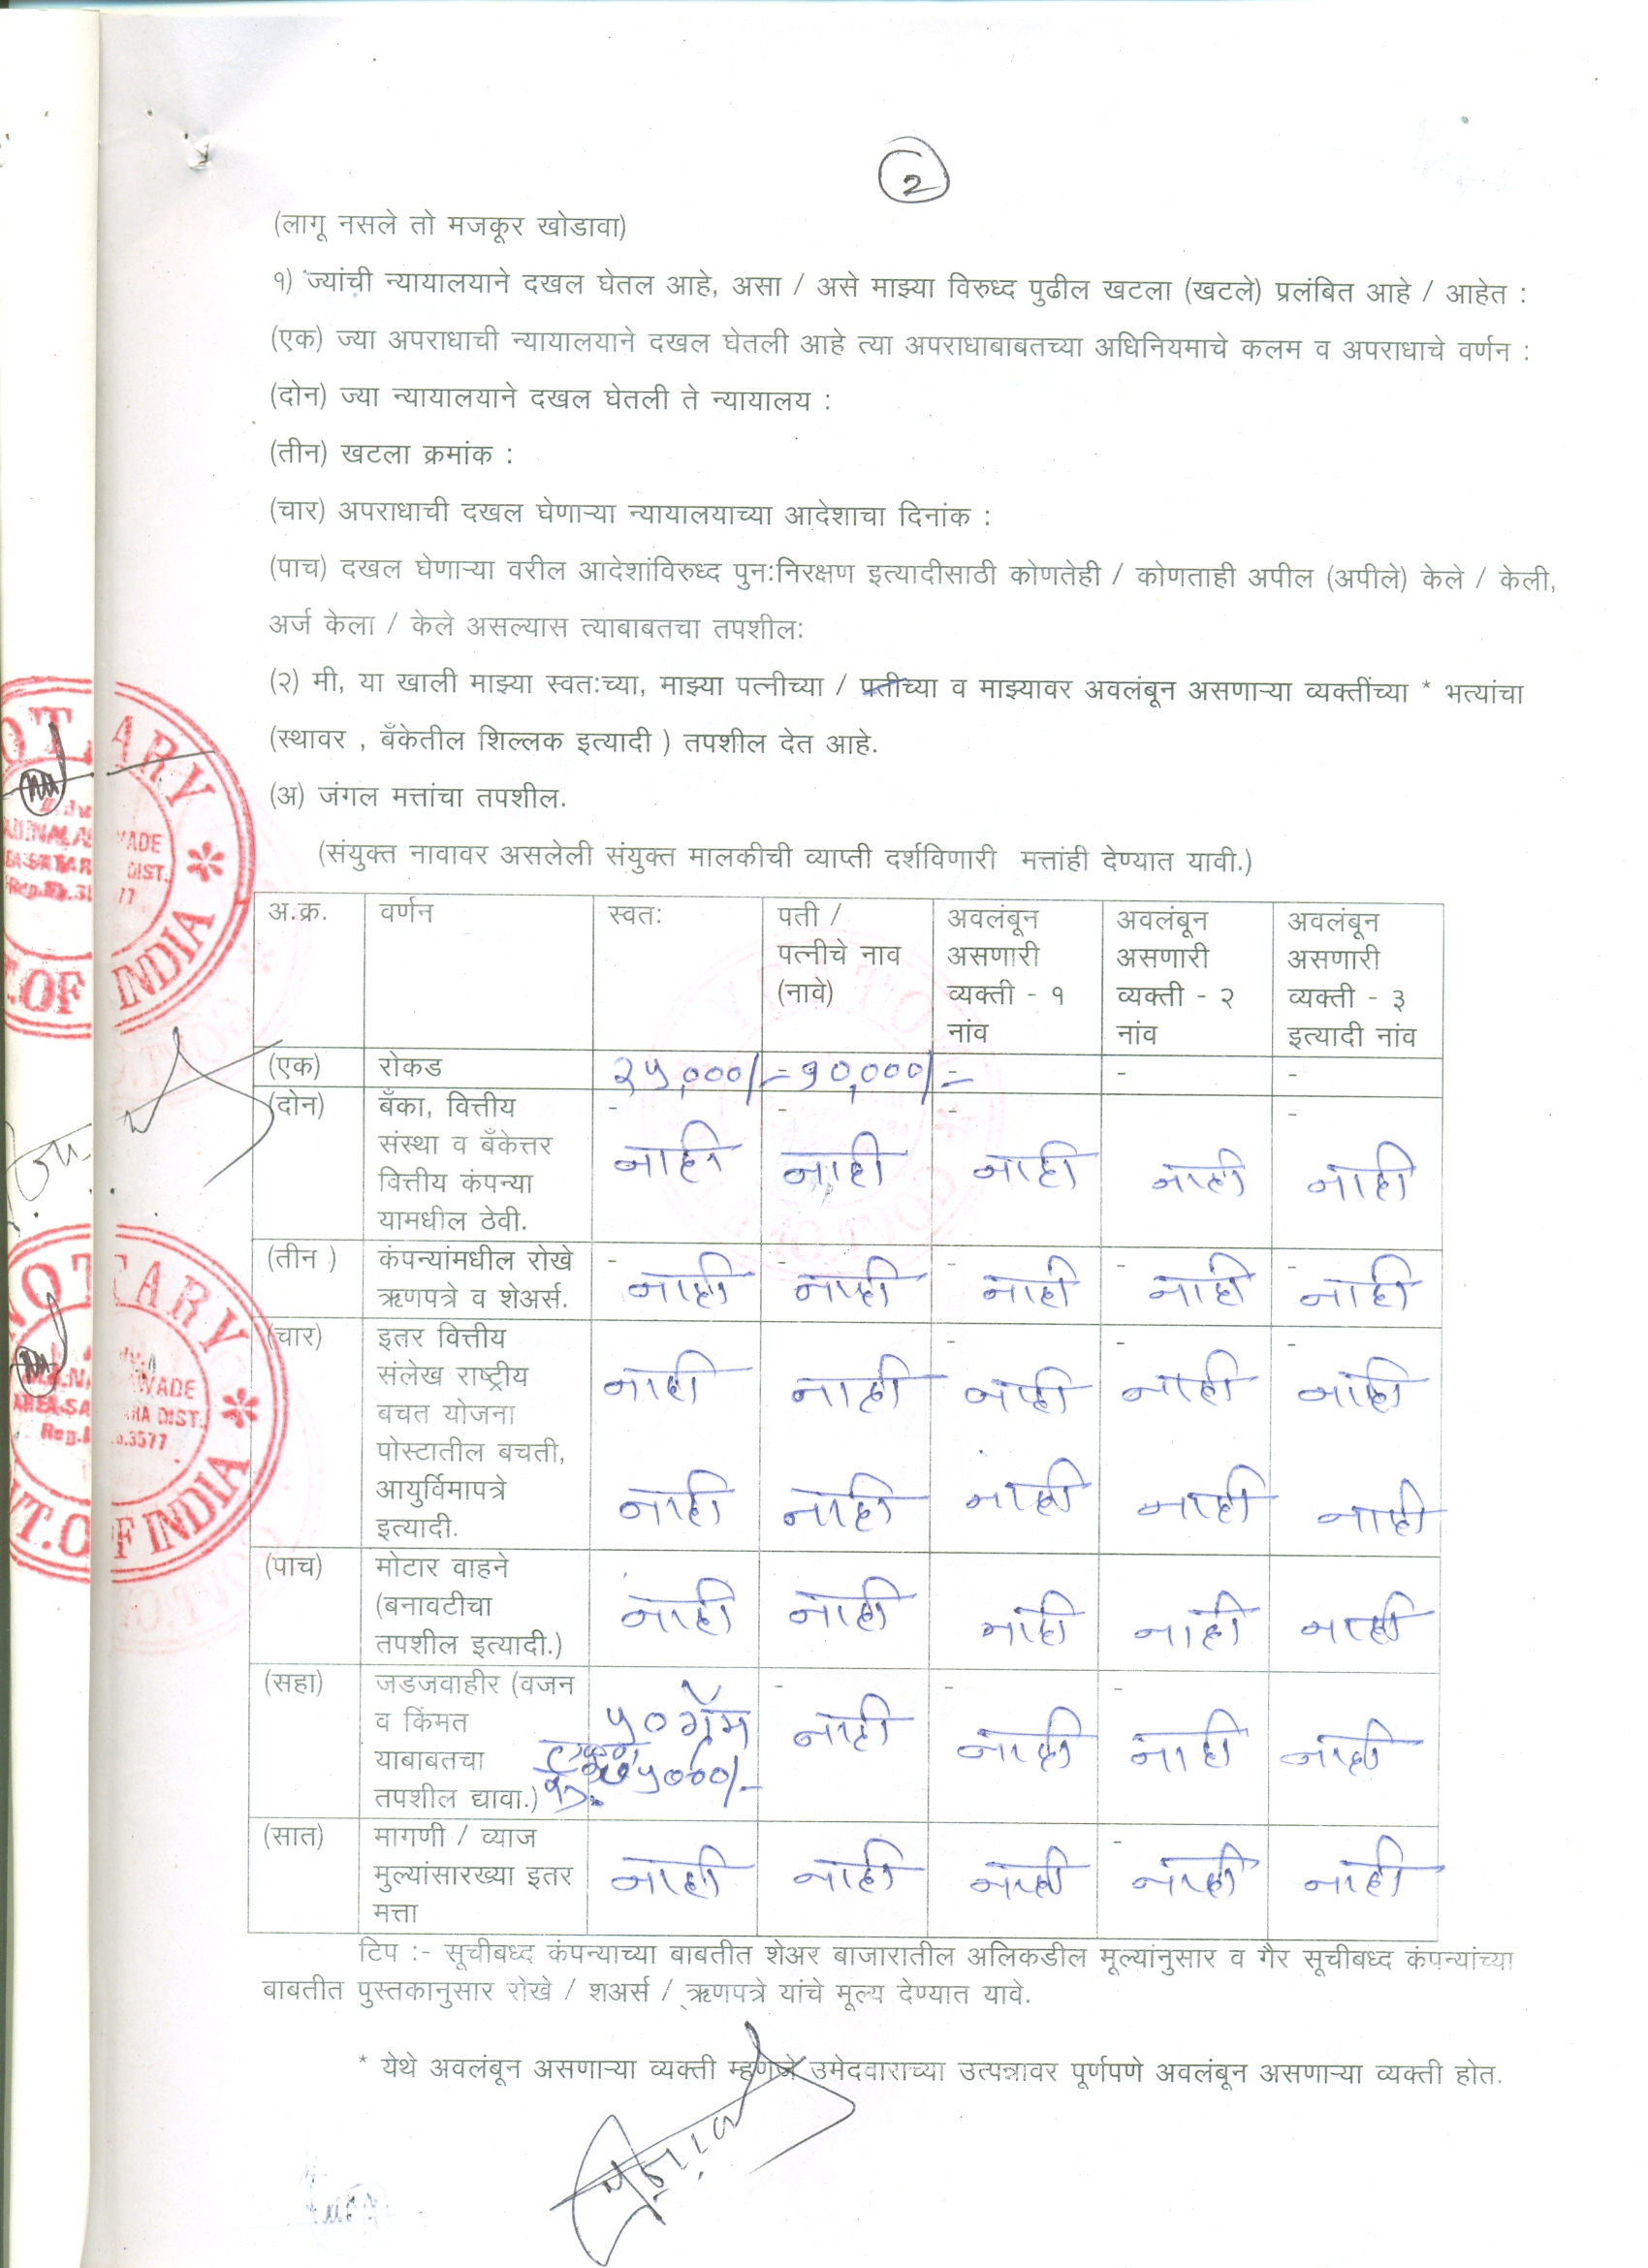 2
(लागू नसले तो मजकूर खोडावा)
१) ज्यांची न्यायालयाने दखल घेतल आहे, असा / असे माझ्या विरुध्द पुढील खटला (खटले) प्रलंबित आहे / आहेत :
(एक) ज्या अपराधाची न्यायालयाने दखल घेतली आहे त्या अपराधाबाबतच्या अधिनियमाचे कलम व अपराधाचे वर्णन :
(दोन) ज्या न्यायालयाने दखल घेतली ते न्यायालय :
(तीन) खटला क्रमांक :
(चार) अपराधाची दखल घेणाऱ्या न्यायालयाच्या आदेशाचा दिनांक :
(पाच) दखल घेणाऱ्या वरील आदेशांविरुध्द पुन:निरक्षण इत्यादीसाठी कोणतेही / कोणताही अपील (अपीले) केले / केली,
अर्ज केला / केले असल्यास त्याबाबतचा तपशील:
(२) मी, या खाली माझ्या स्वत:च्या, माझ्या पत्नीच्या / पतीच्या व माझ्यावर अवलंबून असणाऱ्या व्यक्तींच्या * भत्यांचा
(स्थावर , बँकेतील शिल्लक इत्यादी ) तपशील देत आहे.
(अ) जंगल मत्तांचा तपशील.
(संयुक्त नावावर असलेली संयुक्त मालकीची व्याप्ती दर्शविणारी मत्तांही देण्यात यावी.)
अ.क्र. वर्णन स्वत: पती / अवलंबून अवलंबून अवलंबून
पत्नीचे नाव असणारी असणारी असणारी
(नावे) व्यक्ती - १ व्यक्ती - २ व्यक्ती - ३
नांव नांव इत्यादी नांव
(एक) रोकड २५,०००/- १०,०००/- - - -
(दोन) बँका, वित्तीय - - - -
संस्था व बँकेत्तर नाही नाही नाही नाही नाही
वित्तीय कंपन्या
यामधील ठेवी.
(तीन ) कंपन्यांमधील रोखे - - - - -
ऋणपत्रे व शेअर्स. नाही नाही नाही नाही नाही
(चार) इतर वित्तीय - - -
संलेख राष्ट्रीय नाही नाही नाही नाही नाही
बचत योजना
पोस्टातील बचती,
आयुर्विमापत्रे नाही नाही नाही नाही नाही
इत्यादी.
(पाच) मोटार वाहने
(बनावटीचा नाही नाही नाही नाही नाही
तपशील इत्यादी.)
(सहा) जडजवाहीर (वजन - - -
व किंमत ५० ग्रॅम नाही नाही नाही नाही
याबाबतचा
तपशील द्यावा.)
(सात) मागणी / व्याज -
मुल्यांसारख्या इतर नाही नाही नाही नाही नाही
मत्ता
टिप :- सूचीबध्द कंपन्याच्या बाबतीत शेअर बाजारातील अलिकडील मूल्यांनुसार व गैर सूचीबध्द कंपन्यांच्या
बाबतीत पुस्तकानुसार रोखे / शअर्स / ऋणपत्रे यांचे मूल्य देण्यात यावे.
* येथे अवलंबून असणाऱ्या व्यक्ती म्हणजे उमेदवाराच्या उत्पन्नावर पूर्णपणे अवलंबून असणाऱ्या व्यक्ती होत.
NOTARY
GOVT. OF INDIA
NOTARY
WADE
DIST.
Reg. No.3577
GOVT. OF INDIA